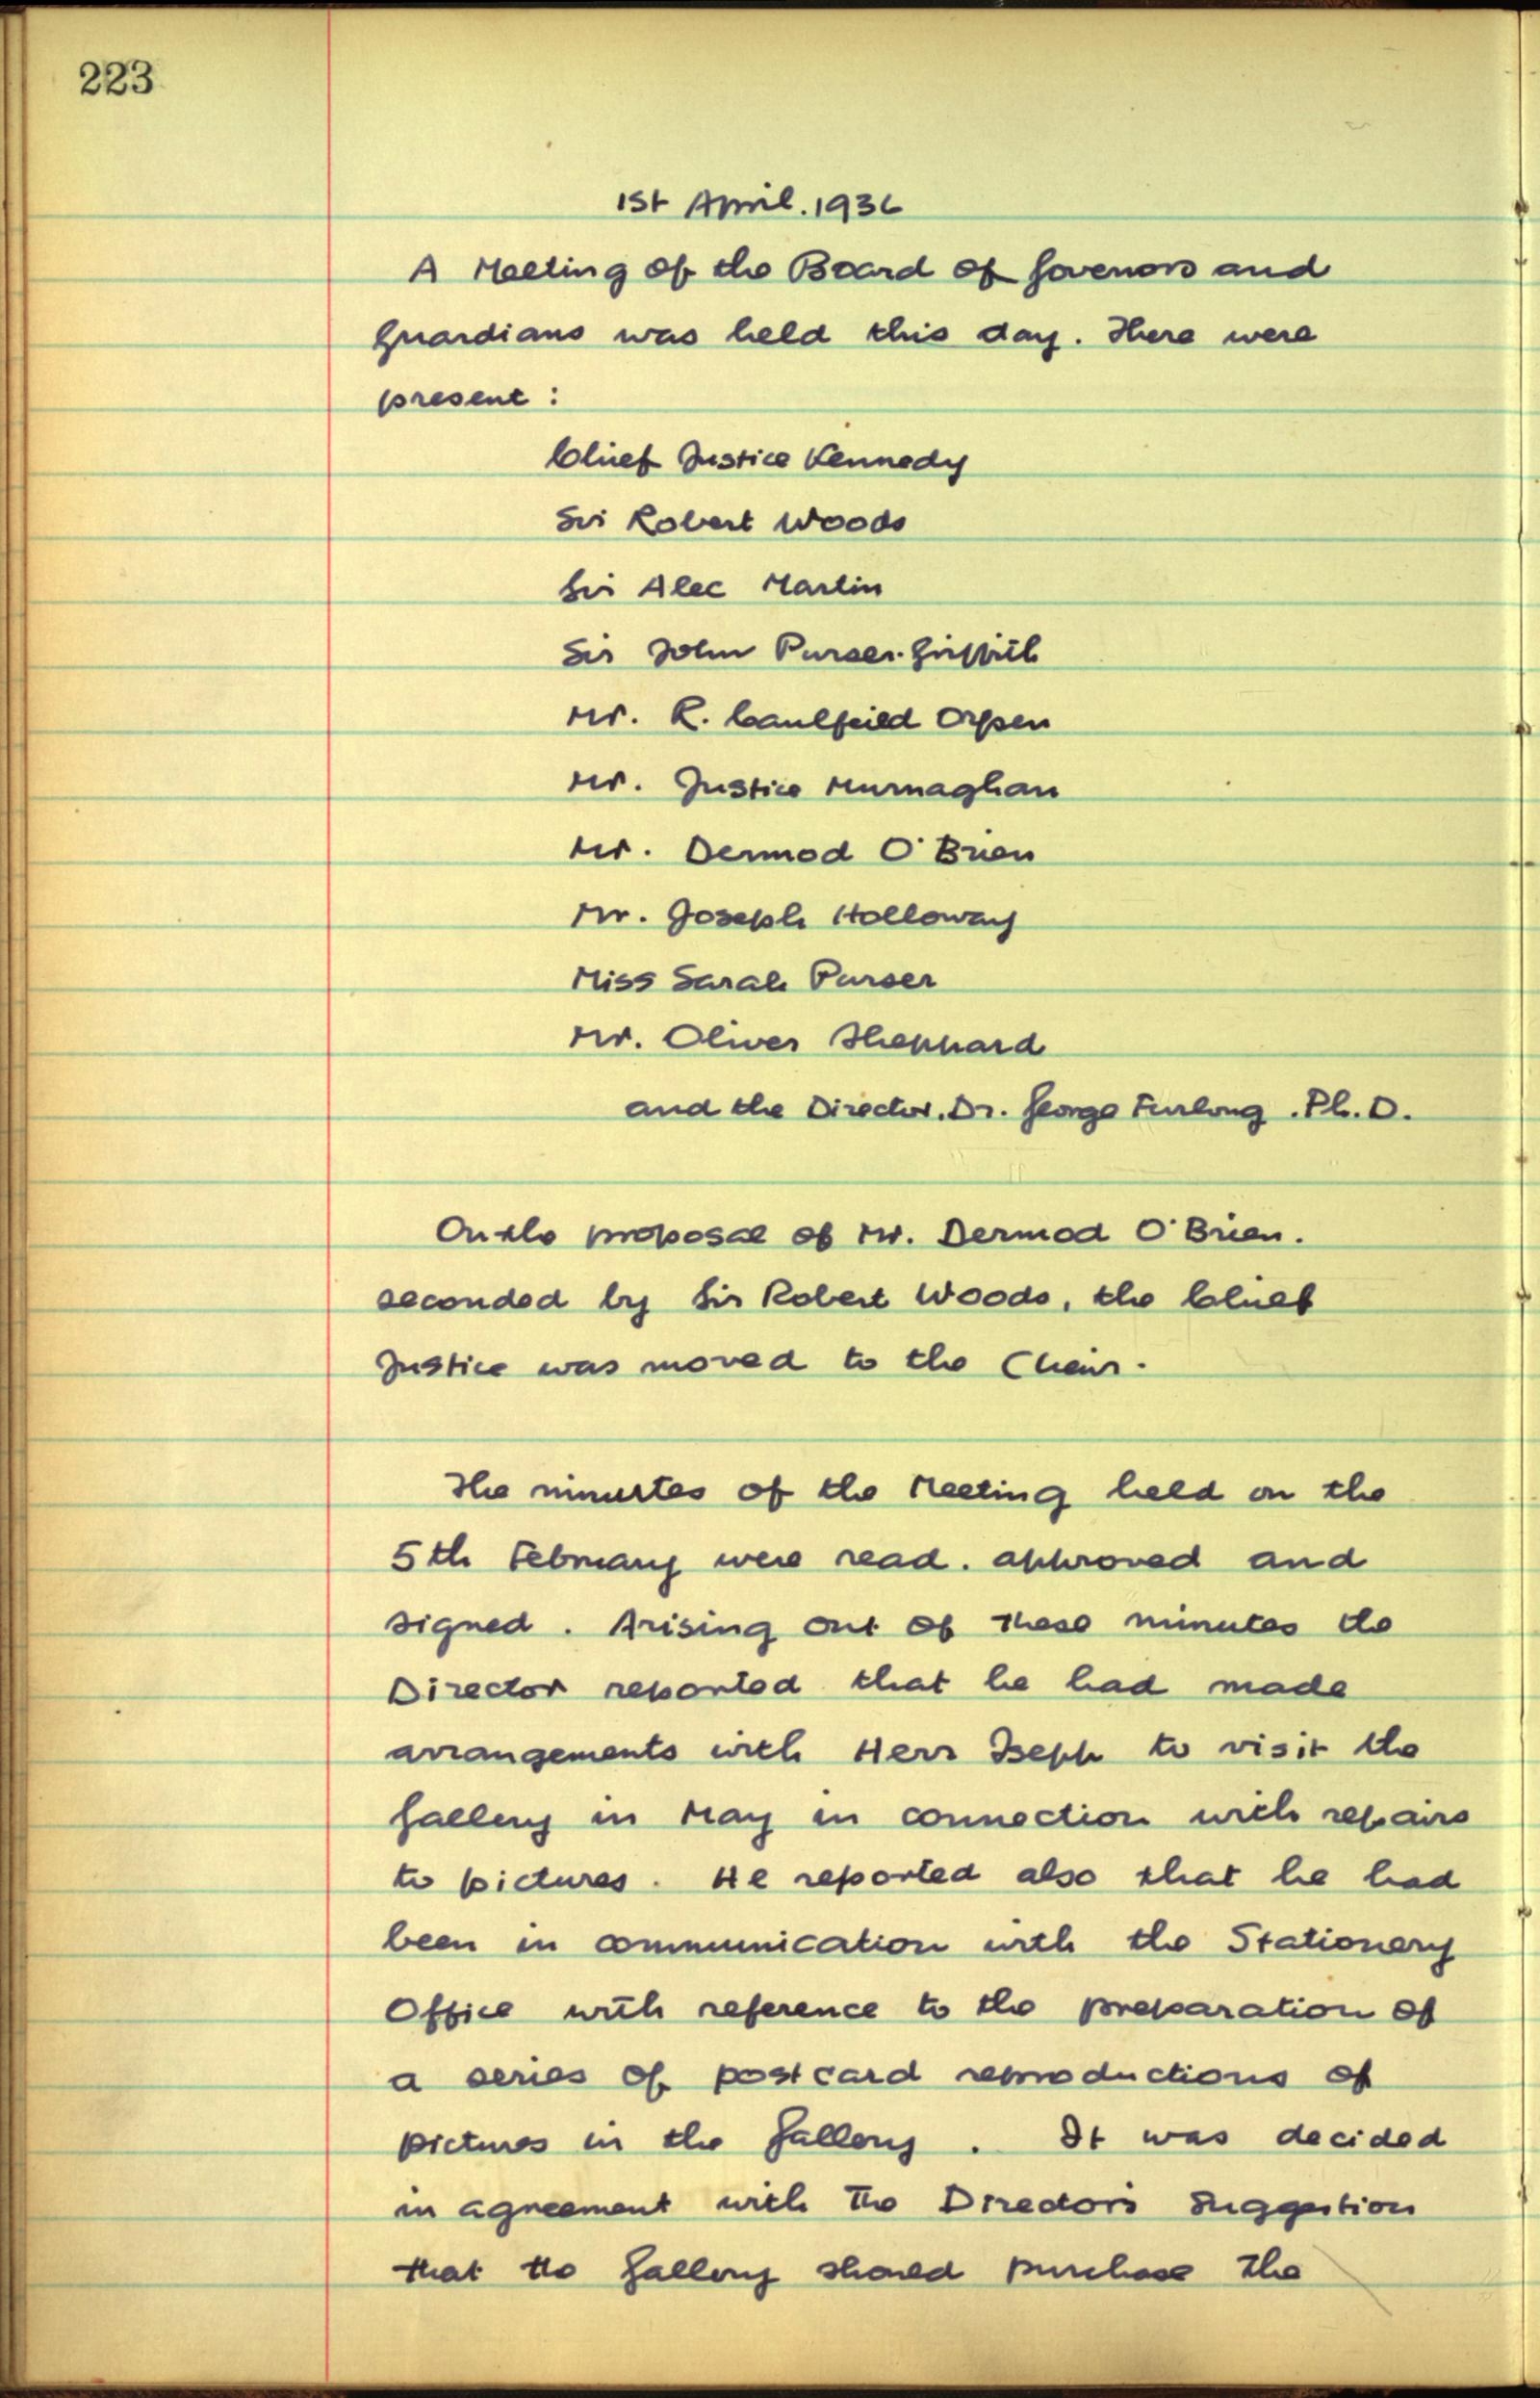 223
1st April. 1936
A Meeting of the Board of Governors and
Guardians was held this day. There were
present :
Chief Justice Kennedy
Sir Robert Woods
Sir Alec Martin
Sir John Purser-Griffith
Mr. R. Caulfeild Orpen
Mr. Justice Murnaghan
Mr. Dermod O'Brien
Mr. Joseph Holloway
Miss Sarah Purser
Mr. Oliver Sheppard
and the Director. Dr. George Furlong . Ph. D.
On the proposal of Mr. Dermod O'Brien.
seconded by Sir Robert Woods, the Chief
Justice was moved to the Chair.
The minutes of the Meeting held on the
5th February were read. approved and
signed . Arising out of these minutes the
Director reported that he had made
arrangements with Herr Isepp to visit the
Gallery in May in connection with repairs
to pictures . He reported also that he had
been in communication with the Stationery
Office with reference to the preparation of
a series of postcard reproductions of
pictures in the Gallery . It was decided
in agreement with the Director's suggestion
that the Gallery should purchase the